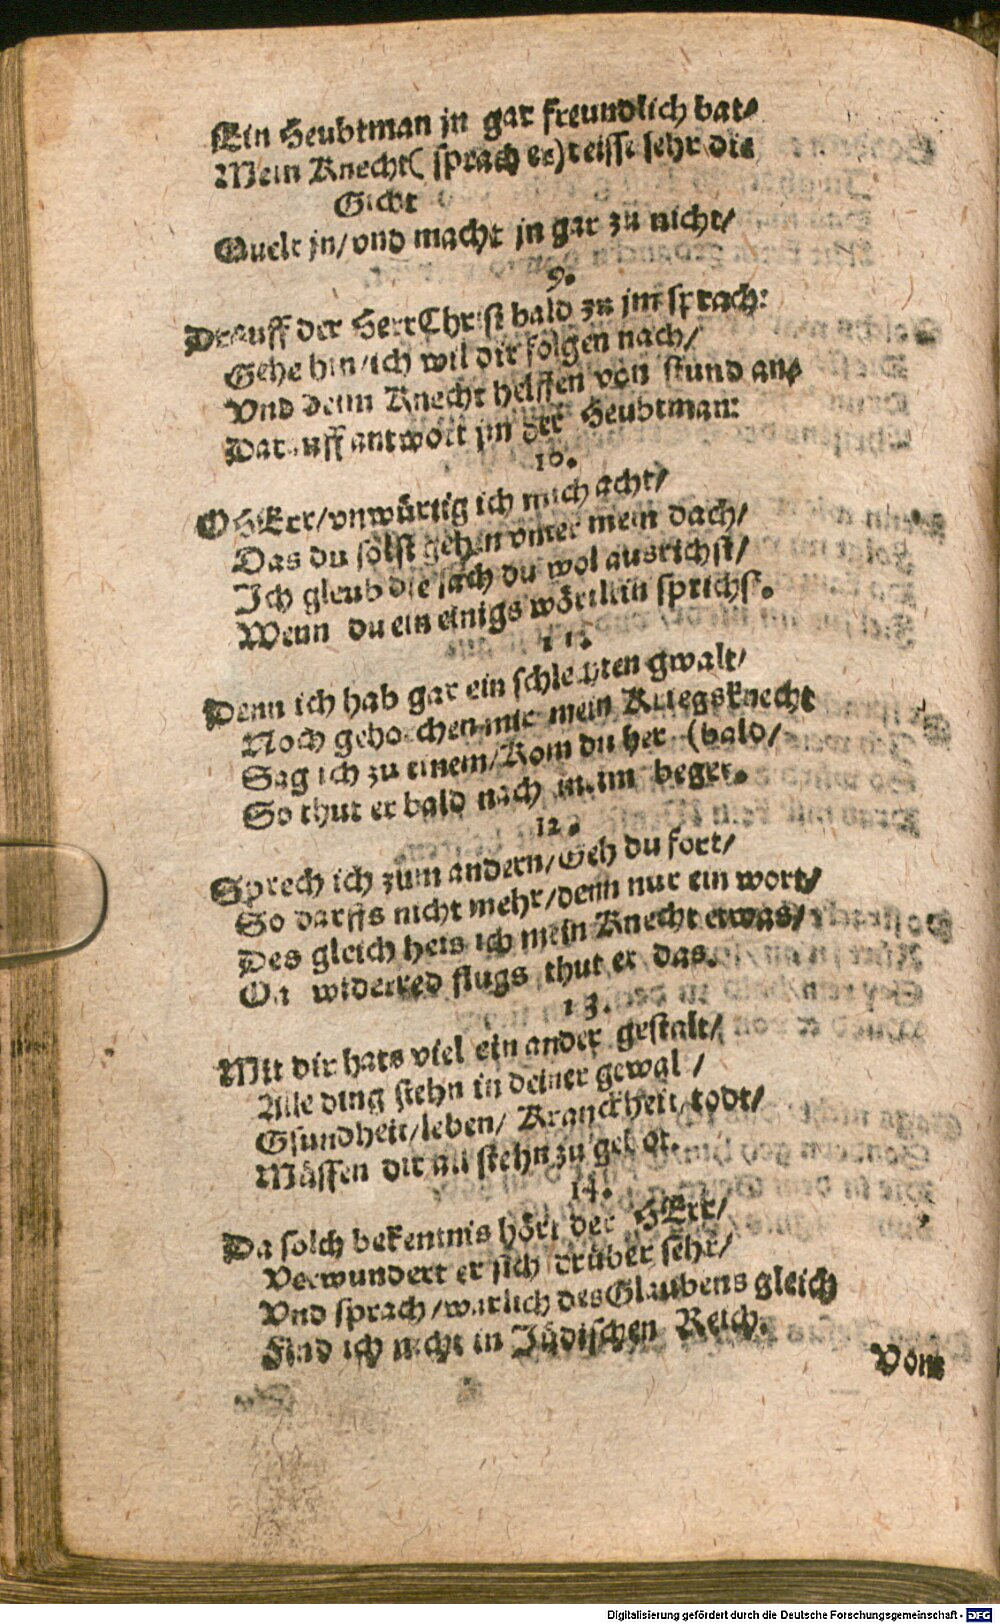 Ein Heubtman jn gar freundlich bat/
Mein Knecht( sprach er) reisst sehr die
Gicht
Quelt jn/vnd macht jn gar zu nicht/
9.
Drauff der Herr Christ bald zu jm sprach:
Gehe hin/ich wil dir folgen nach/
Vnd deim Knecht helffen von stund an/
Darauff antwort jm der Heubtman:
10.
O HErr/vnwürtig ich mich acht/
Das du solst gehen vnter mein dach/
Ich gleub die sach du wol ausrichst/
Wenn du ein einigs wörtlein sprichst.
11.
Denn ich hab gar ein schlechten gwalt/
Noch gehorchen mir mein Kriegsknecht
Sag ich zu einem/Kom du her (bald/
So thut er bald nach meim beger.
12.
Sprech ich zum andern/Geh du fort/
So darffs nicht mehr/denn nur ein wort/
Des gleich heis ich mein Knecht etwas/
On widerred flugs thut er das.
13.
Mit dir hats viel ein ander gestalt/
Alle ding stehn in deiner gewalt/
Gsundheit/leben/ Kranckheit/todt/
Müssen dir all stehn zu gebot.
14.
Da solch bekentnis hört der HErr/
Verwundert er sich drüber sehr/
Vnd sprach/warlich des Glaubens gleich
Find ich nicht in Jüdischen Reich.
Vom
Digitalisierung gefördert durch die Deutsche Forschungsgemeinschaft - DFG